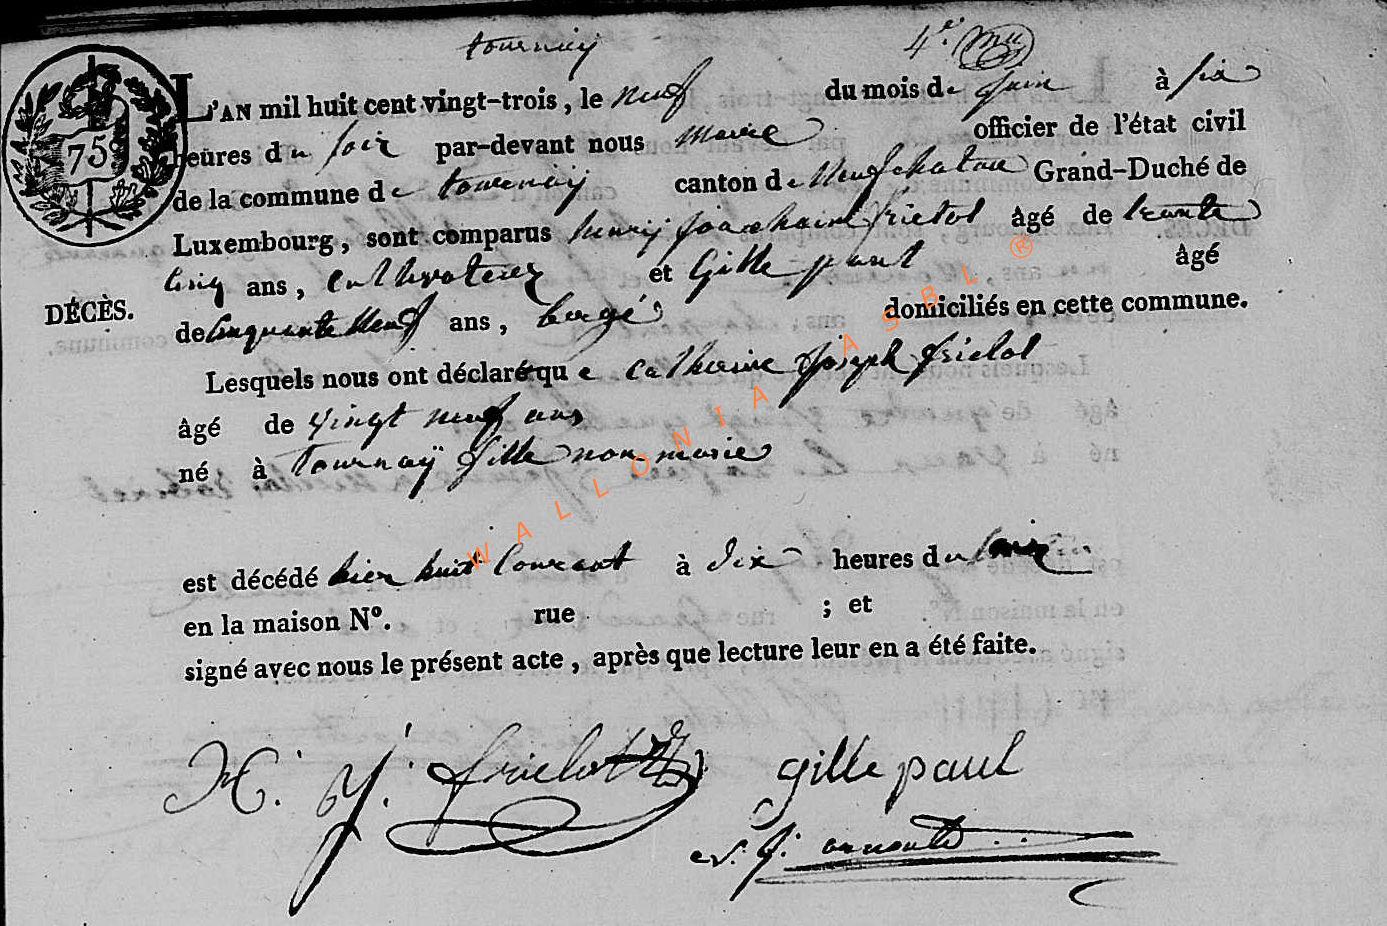 tournay 4.e
75
L'AN mil huit cent vingt-trois, le neuf du mois de juin à six
heures du soir par-devant nous maire officier de l'état civil
de la commune de tournay canton de Neufchateau Grand-Duché de
Luxembourg, sont comparus henry joachaim frielot âgé de trente
cinq ans, cultivateur et Gille paul âgé
de cinquante neuf ans, bergé domiciliés en cette commune.
DÉCÈS.
Lesquels nous ont déclaré que catherine joseph frielot
âgé de vingt neuf ans
né à Tournaÿ fille non marie
est décédé hier huit Courant à dix heures du soir
en la maison N°. rue ; et
signé avec nous le présent acte, après que lecture leur en a été faite.
H. j. frielot gille paul
j.
WALLONIA ASBL ®